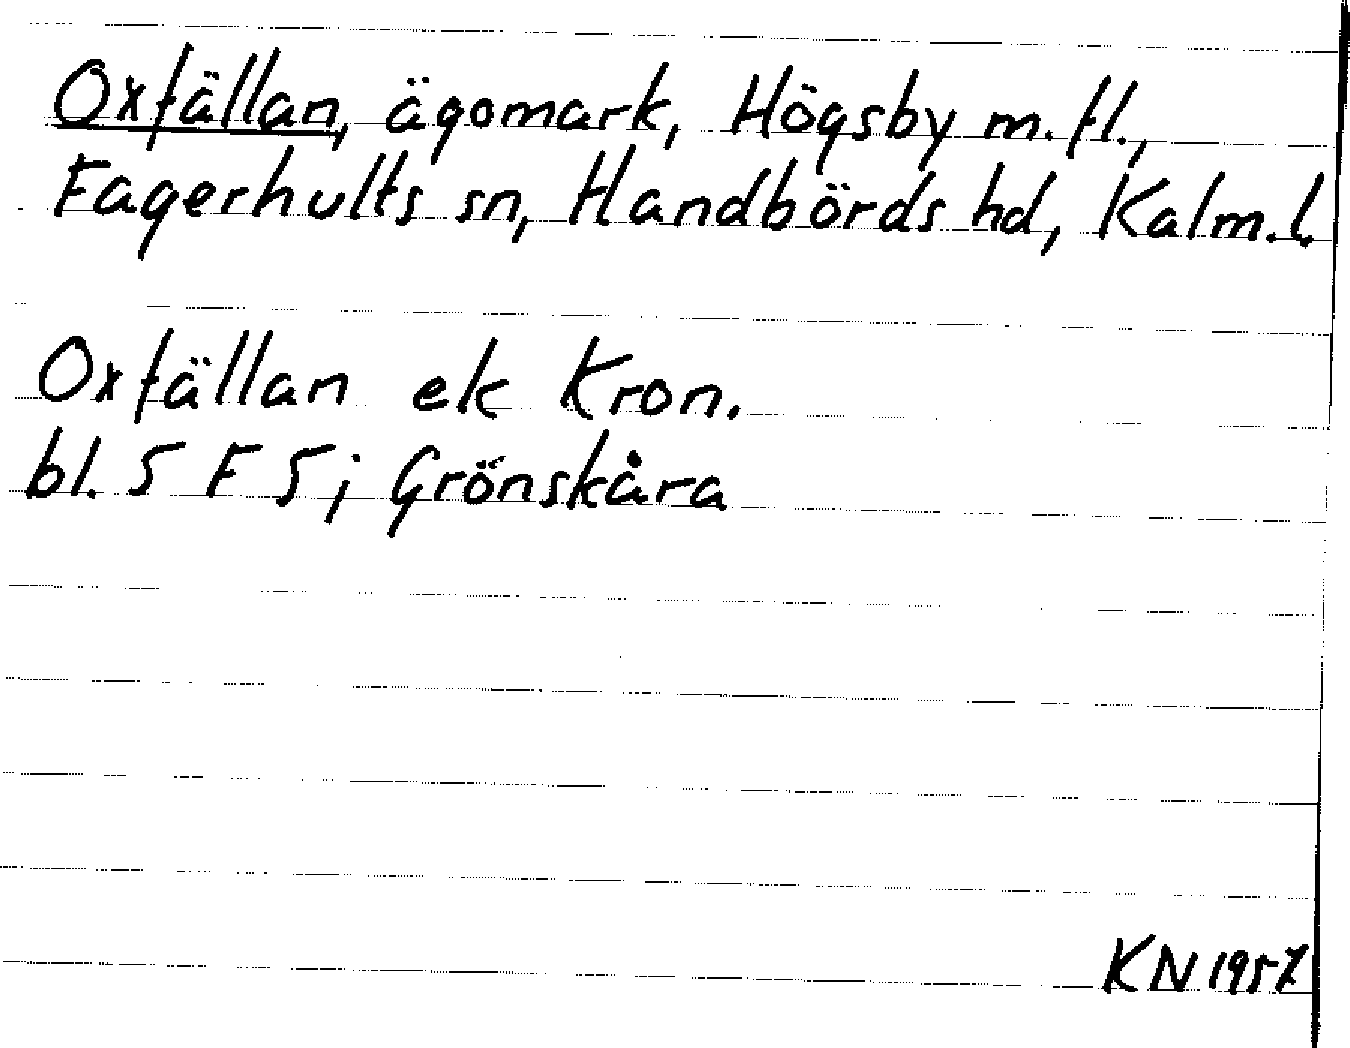 Oxfällan, ägomark, Högsby m.fl.,
Fagerhults sn, Handbörds hd, Kalm.l.
Oxfällan ek Kron.
bl. 5 F 5 j Grönskåra
KN 1957